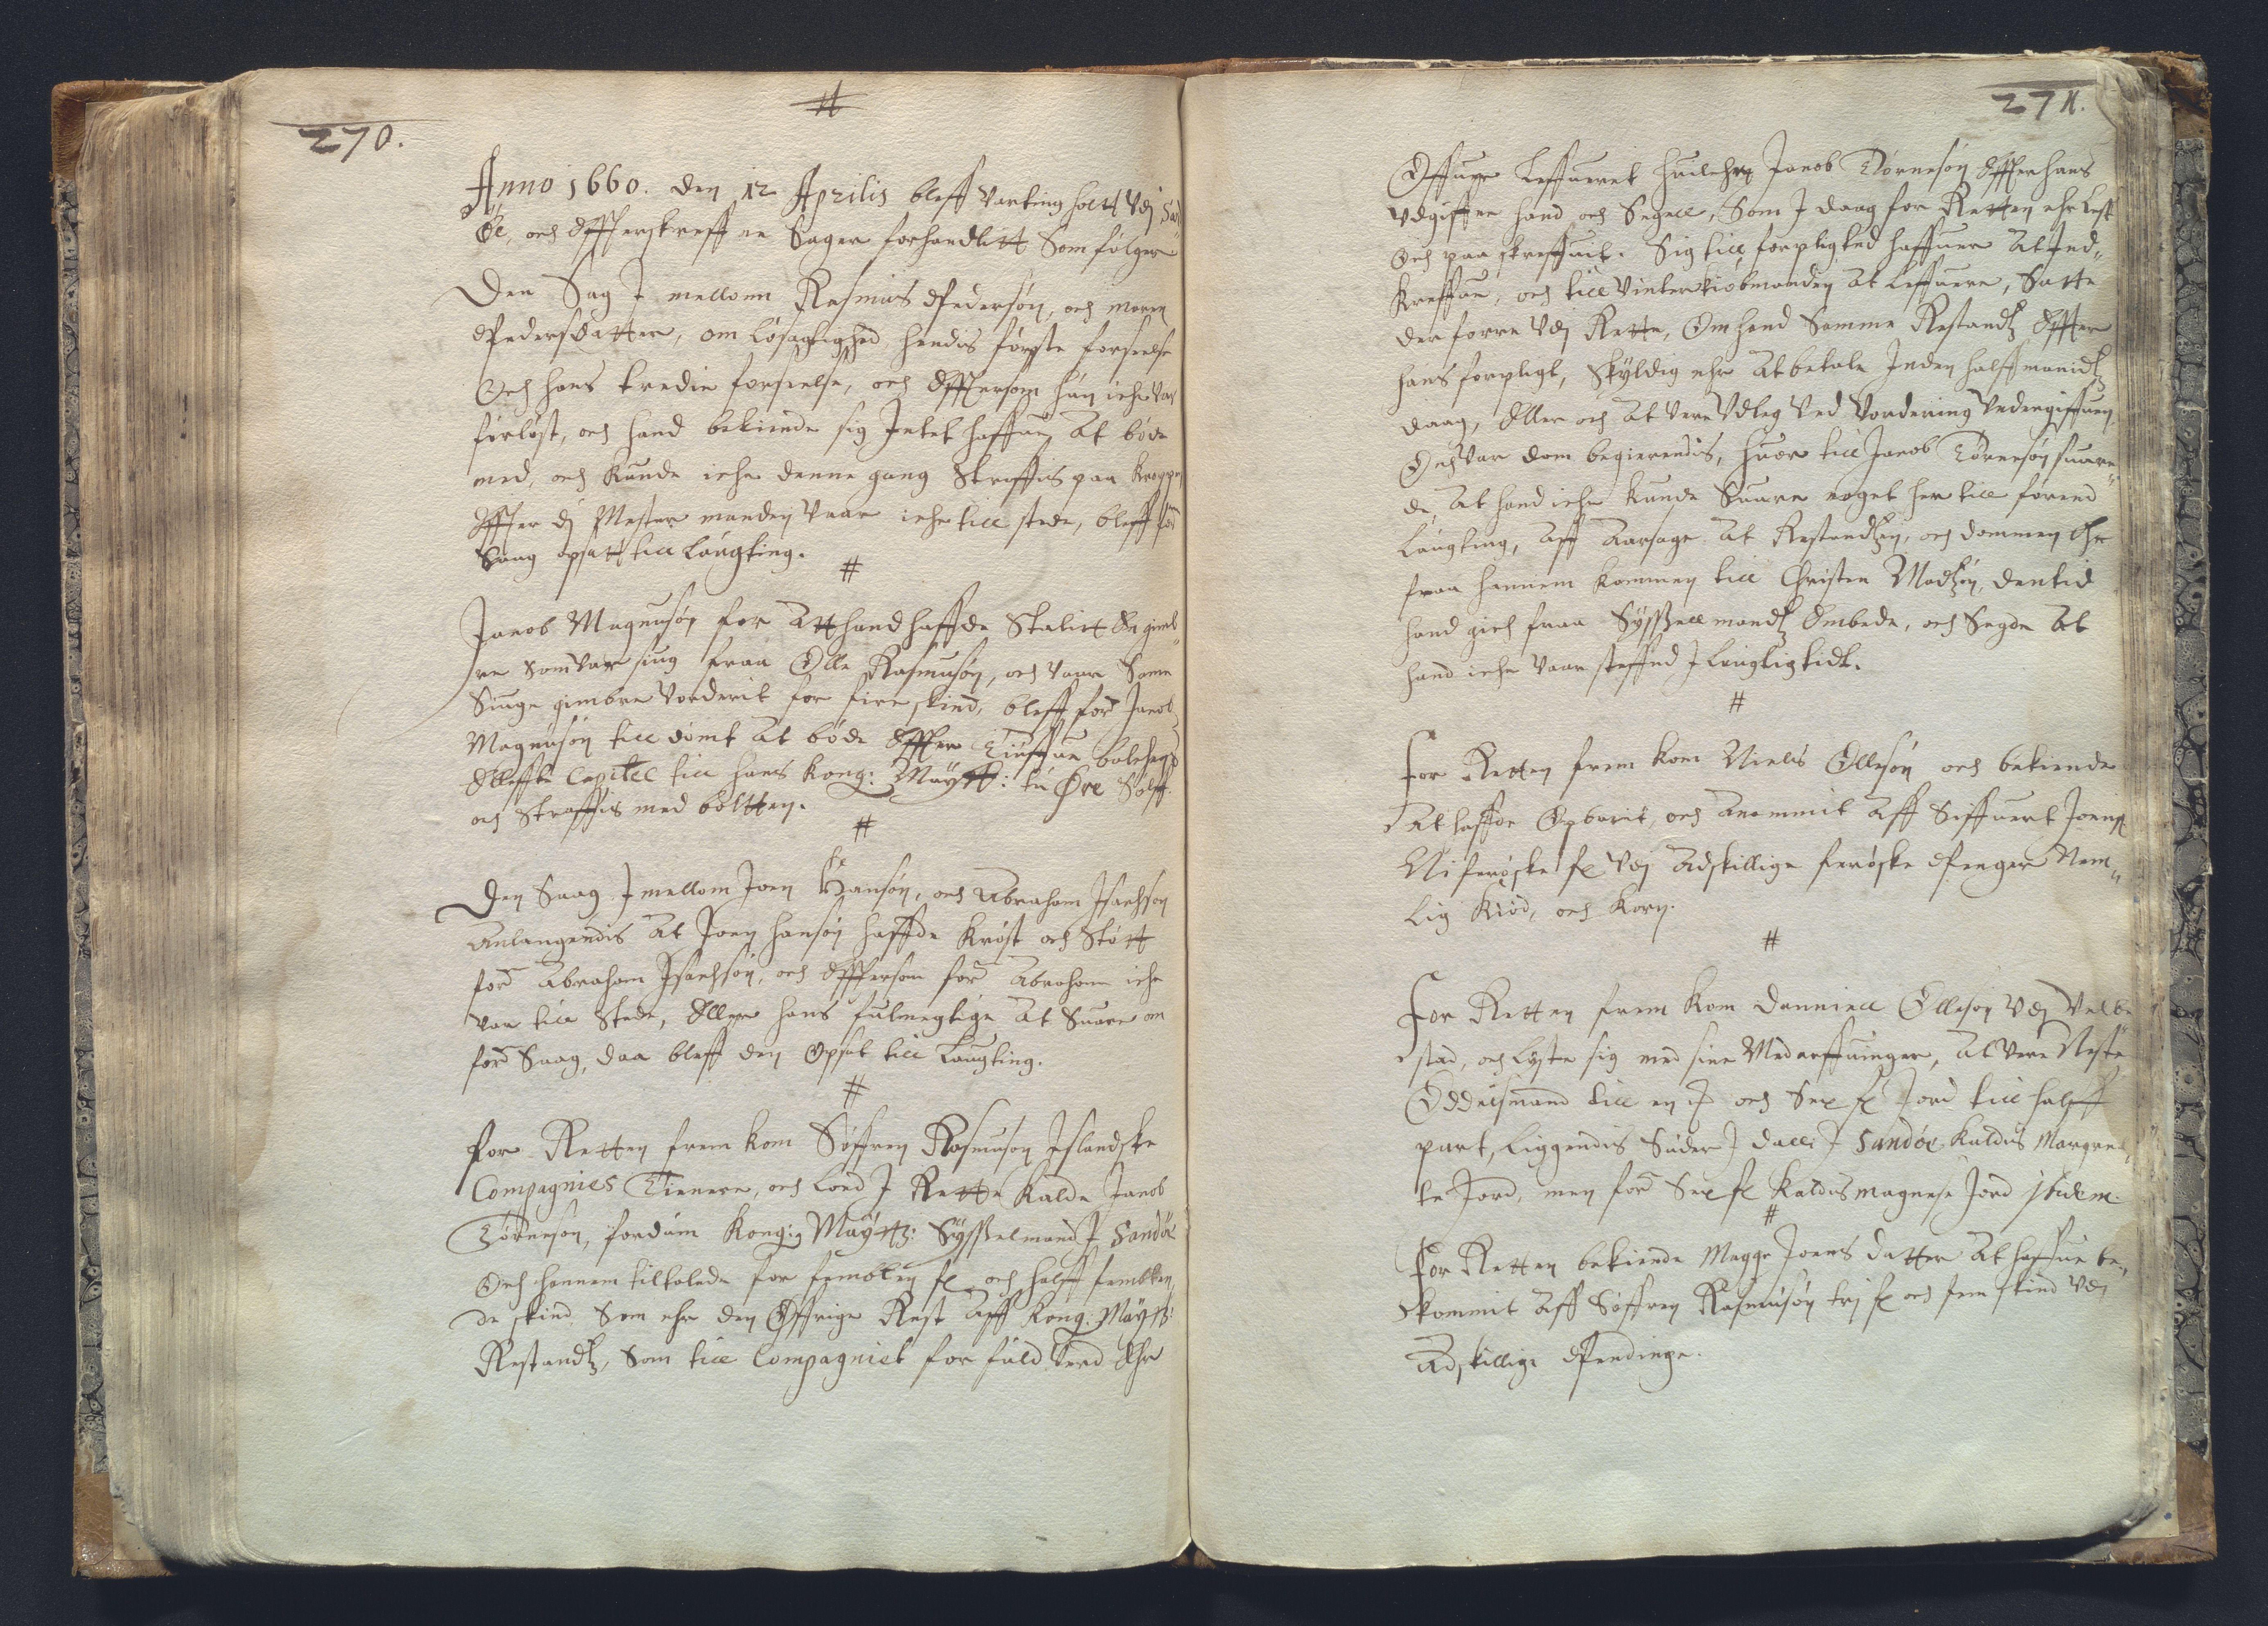 270.
Anno 1660. den 12 Aprilis bleff Varting holtt Vdj Sand„
Øe, och Effterskreffne Sager forhandlitt Som følger
Den Sag J mellom Rasmus Pedersøn, och maren
Pedersdatter, om Løsagtighed, hendis første forseelse
Och hans tredie forseelse, och Effttersom hun iche Var
forløst, och hand bekiende sig Jntet haffue At bøde
med, och kunde iche denne gang Straffis paa kroppen
Effter dj Mester manden Vaar iche till stede, bleff ford
Saag opsatt till Laugting.
Jacob Magnusøn for Att hand haffde Stalitt En gimb„
re som Var siug fraa Olle Rasmusøn, och Vaar Same
Siuge gimbre Vorderit for fire skind, bleff ford Jacob
Magnusøn till dømt At bøde Effter Tiuffue balchens
Elleffte Capitel till hans Kong: Maÿtt: tu Øre Sølff.
och Straffis med boltten.
Den Saag J mellom Joen Hansøn, och Abraham Jsachson
Anlangendis At Joen hansøn haffde krøst och Støtt
ford Abraham Jsachsøn, och Effttersom ford Abraham iche
Var till Stede, Eller hans fulmegtige At Suare om
ford Saag, daa bleff den Opsat till Laugting.
For Retten frem kom Søffren Rasmuson Jslandske
Compagnies Tienere, och Loed J Rette kalde Jacob
Tørneson, fordum Kongis Maÿtts: Sysselmand J Sandøe
Och hannem tiltalede for femten fl och halff femtten„
de skind Som ehr den Øffrige Rest Aff Kong: Maÿtts:
Restandtz, Som till Compagniet for fuld Verd Ehr
271.
Offuer Leffueret huilchen Jacob Tørnesøn Effter hans
Vdgiffne hand och Segell, Som J daag for Retten ehr Lest
Och paa skreffuit. Sig till forpligted haffuer At Jnd„
kreffue, och till Vinterkiøbmanden At Leffuere, Satte
der forre Vdj Rette, Om hand Samme Restandtz Effter
hans forpligt, Skÿldig ehr At betale Jnden halff manidtz
daag, Eller och At Vere Vdleg Ved Vordering Vndergiffuen
Och Var dom begierendis, huor till Jacob Tørnesøn suare„
de, At hand iche kunde Suare noget her till førend
Laugting, Aff Aarsage At Restandtzen, och dommen Ehr
fraa hannem kommen till Christen Madtzøn, den tid
hand gich fraa Sÿsselmandtz Ombede, och Segde At
hand iche Vaar steffned J Lauglig tidt.
For Retten frem kom Niels Ollesøn och bekiende
At haffue Opbaarit, och Anammit Aff Siffuert Joens
Ni ferøske fl Vdj Adskillige ferøske Penger Nem„
lig kiød, och korn.
For Retten frem kom Danniell Ollesøn Vdj Velbe„
stad, och Lÿste sig med sine Medarffuinger, At Vere Neste
Oddelsmand till en J och Sex fl Jord till halff
part, Liggendis Suder J dall J Sandøe kaldis Margre„
te Jord, men ford Sex fl kaldis magnese Jord ibidem.
For Retten bekiende Magge Joens datter At haffue be„
kommit Aff Søffren Rasmusøn trj fl och fem skind Vdj
Adskillige Pendinge.